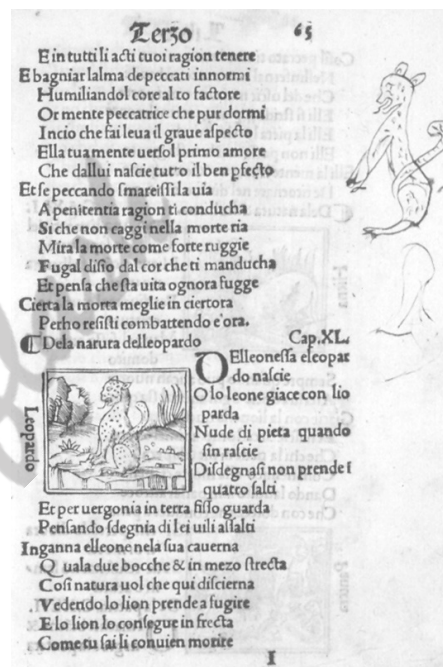 Terzo 65
E in tutti li acti tuoi ragion tenere
E bagniar lalma de peccati innormi
Humiliandol core al to factore
Or mente peccatrice che pur dormi
Incio che fai leua il graue aspecto
Ella tua mente uersol primo amore
Che dallui nascie tutto il ben pfecto
Et se peccando smarissi la uia
A penitentia ragion ti conducha
Si che non caggi nella morte ria
Mira la morte come forte ruggie
Fugal disio dal cor che ti manducha
Et pensa che sta uita ognora fugge
Cierta la morta meglie in ciertora
Perho resisti combattendo e'ora.
Dela narura delleopardo Cap.XL.
Leopardo
DElleonessa eleopar
do nascie
O lo leone giace con lio
parda
Nude di pieta quando
sin rascie
Disdegnasi non prende i
quatro salti
Et per uergonia in terra fisso guarda
Pensando sdegnia di lei uili assalti
Inganna elleone nela sua cauerna
Quala due bocche & in mezo strecta
Cosi natura uol che qui discierna
Vedendo lo lion prende a fugire
E lo lion lo consegue in frecta
Come tu sai li conuien morire
I